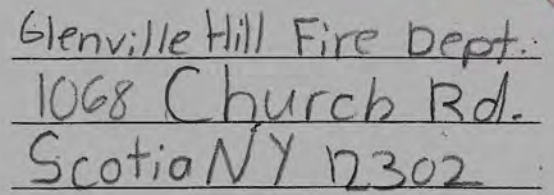 Glenville Hill Fire Dept.
1068 Church Rd.
Scotia NY 12302